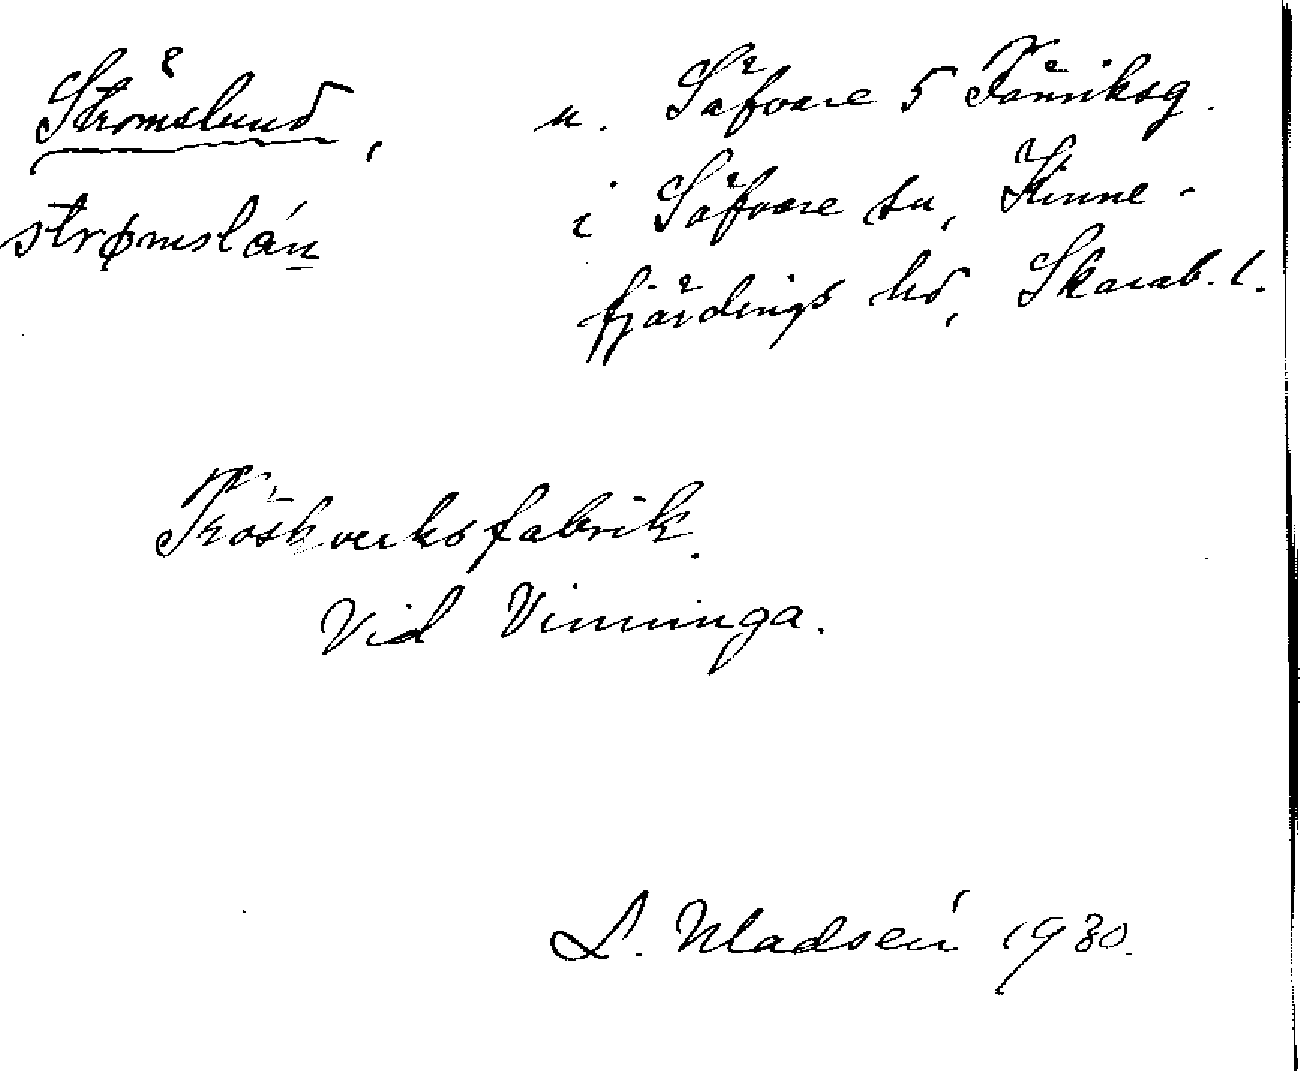 Strömslund,
strømslán
u. Säfvare 5 Fänriksg.
i Säfvare sn, Kinne-
fjärdings hd, Skarab. l.
Tröskverksfabrik.
Vid Vinninga.
L. Madsén 1930.